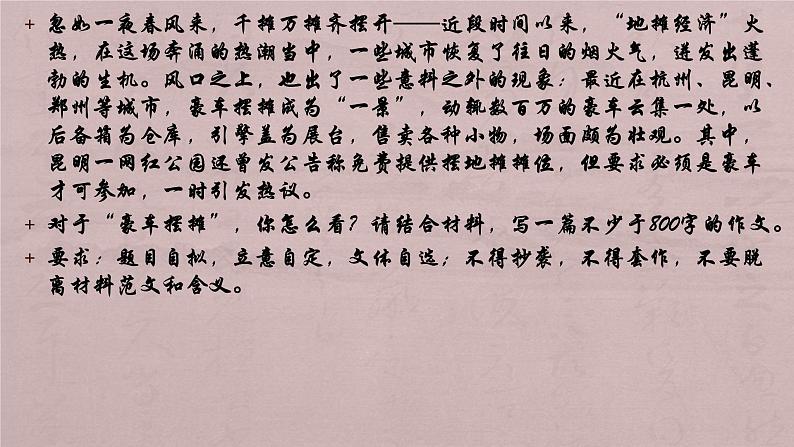 + 忽如一夜春风来，千摊万摊齐摆开——近段时间以来，“地摊经济”火
热，在这场奔涌的热潮当中，一些城市恢复了往日的烟火气，迸发出蓬
勃的生机。风口之上，也出了一些意料之外的现象：最近在杭州、昆明、
郑州等城市，豪车摆摊成为“一景”，动辄数百万的豪车云集一处，以
后备箱为仓库，引擎盖为展台，售卖各种小物，场面颇为壮观。其中，
昆明一网红公园还曾发公告称免费提供摆地摊摊位，但要求必须是豪车
才可参加，一时引发热议。
+ 对于“豪车摆摊”，你怎么看？请结合材料，写一篇不少于800字的作文。
+ 要求：题目自拟，立意自定，文体自选；不得抄袭，不得套作，不要脱
离材料范文和含义。